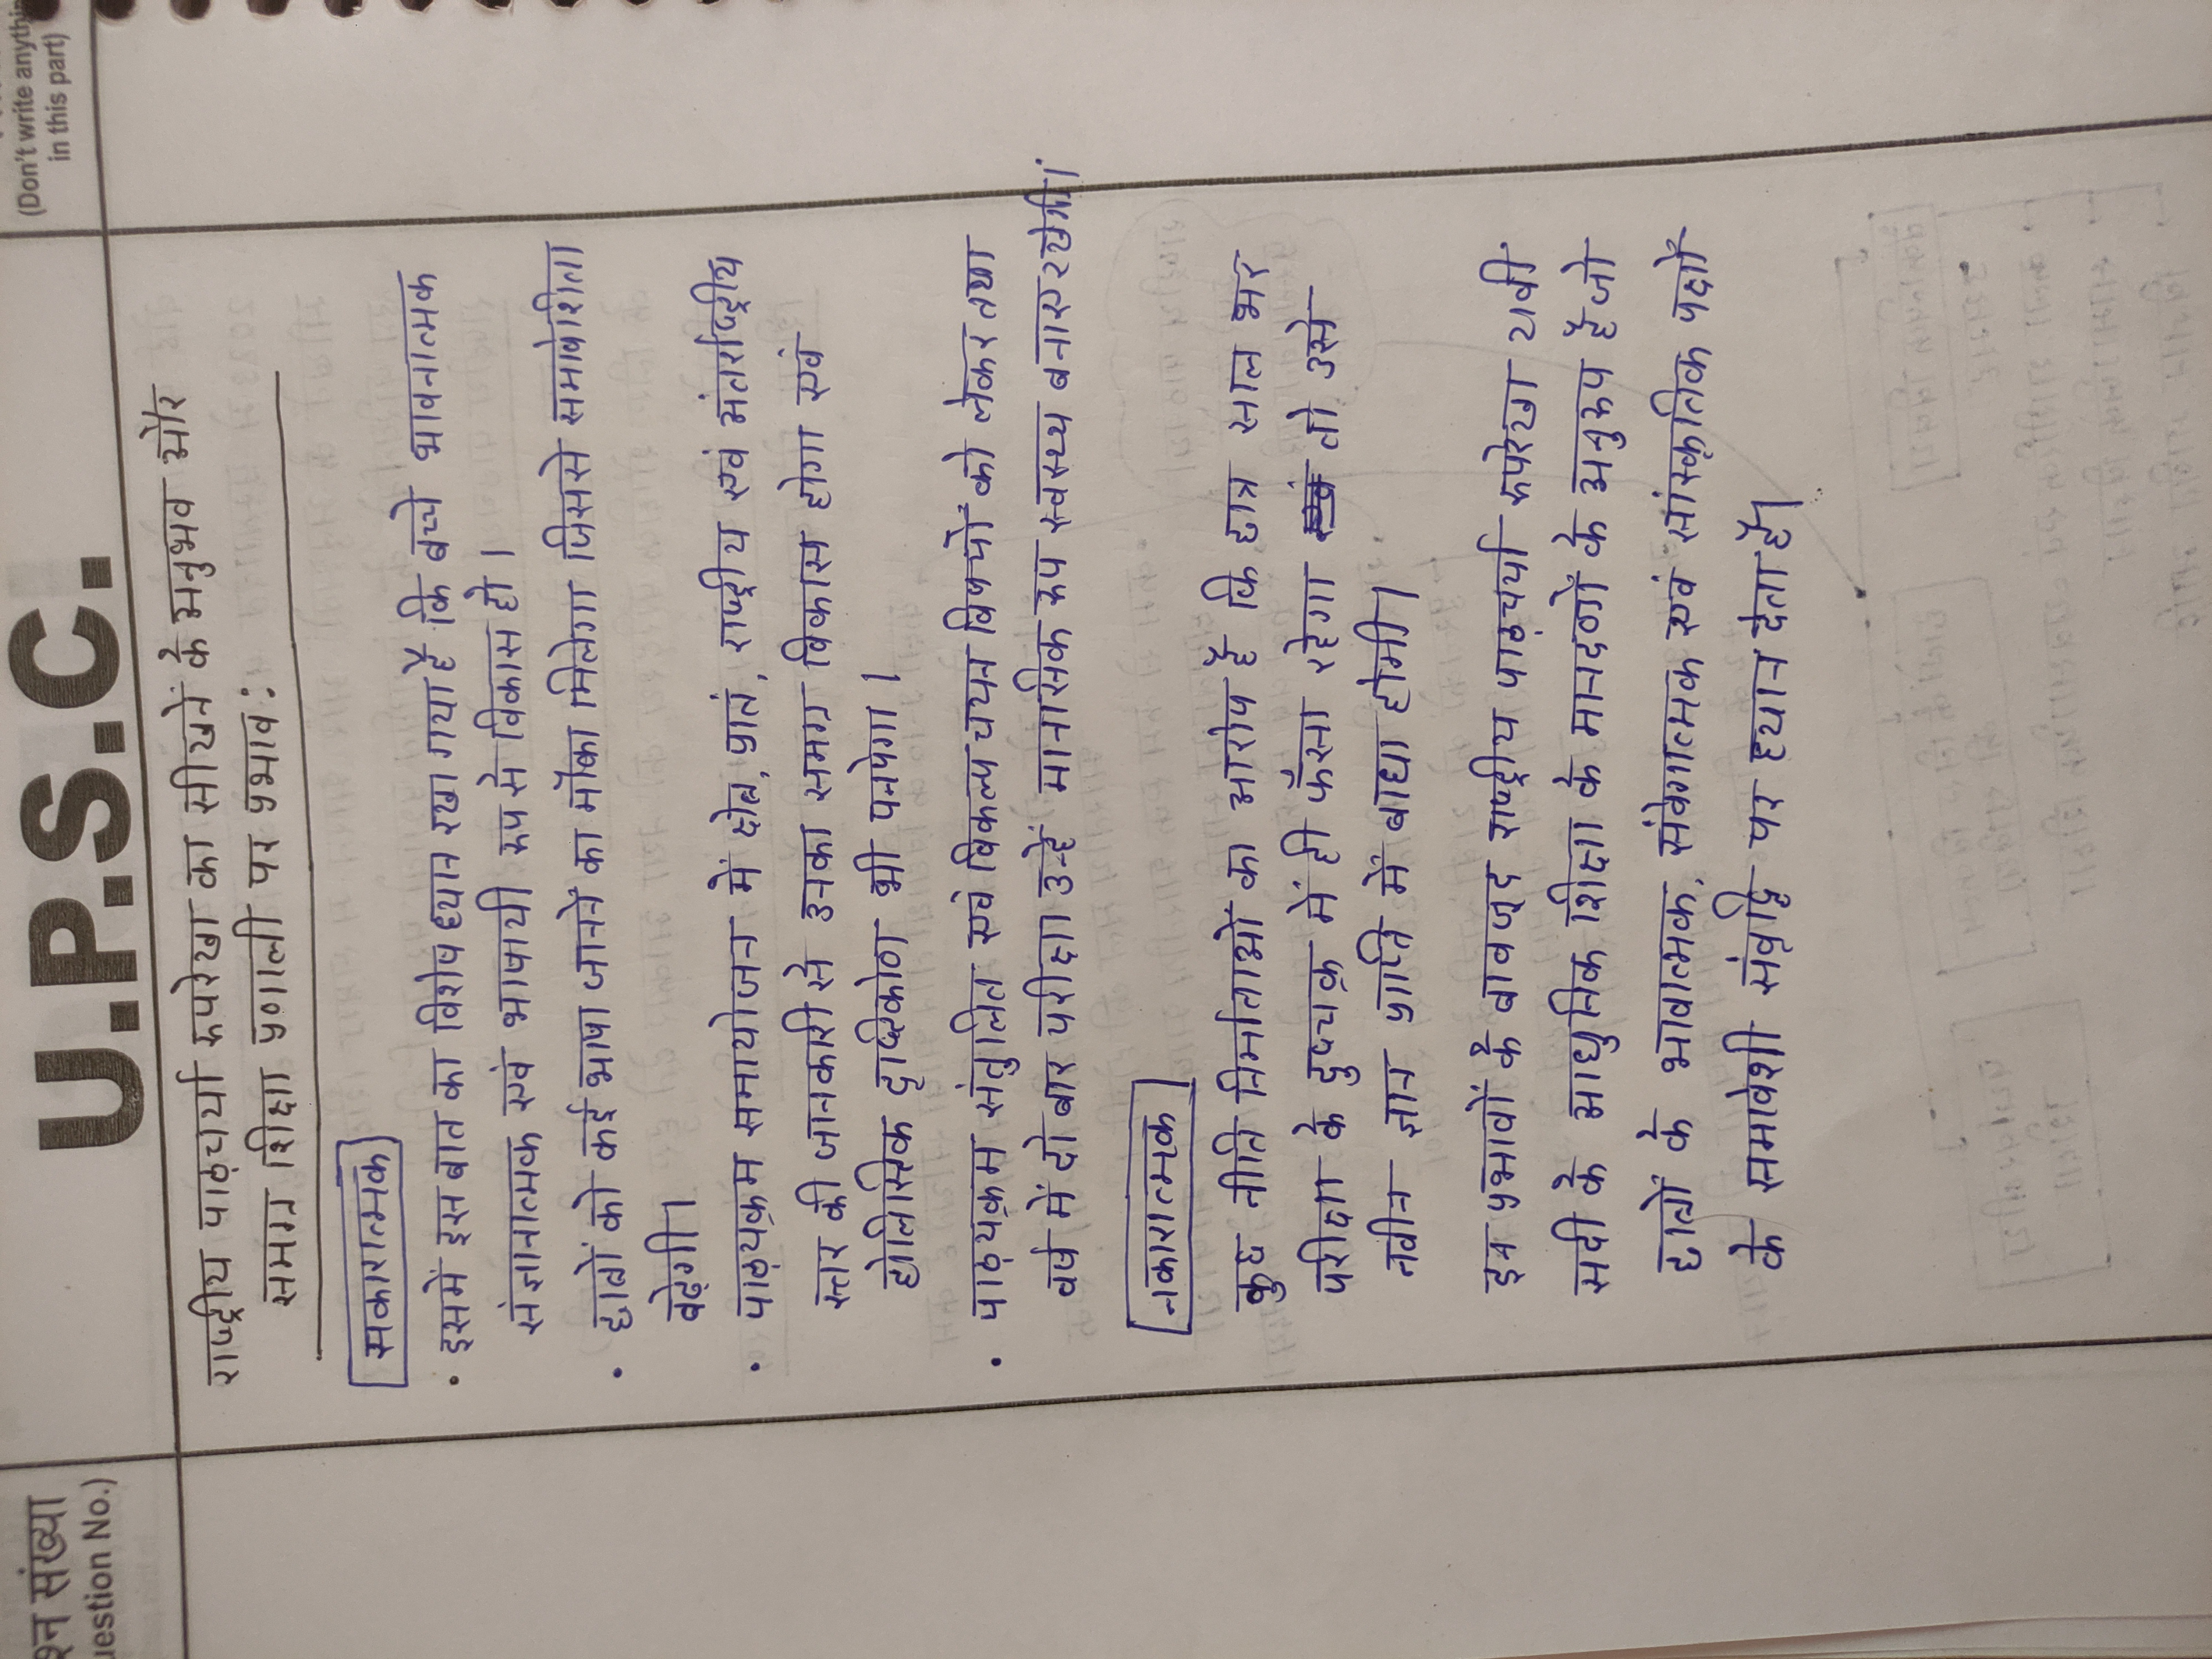 U.P.S.C.
श्न संख्या
uestion No.)
(Don't write anythi
in this part)
राष्ट्रीय पाठ्चर्या रूपरेखा का सीखनें के अनुभव और
समग्र शिक्षा प्रणाली पर प्रभाव:
सकारात्मक
• इसमें इस बात का विशेष ध्यान रखा गया है कि बच्चे भावनात्मक
संज्ञानात्मक एवं भाषायी रूप से विकास हो।
• छात्रों को कई भाषा जाननें का मौका मिलेगा जिससे समावेशीता
बढ़ेगी।
• पाठ्यक्रम समायोजन में क्षेत्र, प्रातं, राष्ट्रीय एवं अंतर्राष्ट्रीय
स्तर की जानकारी से उनका समग्र विकास होगा एवं
होलिस्तिक दृष्टिकोण भी पनपेगा।
• पाठ्यक्रम संतुलित एवं विकल्प चयन विषयों को लेकर तथा
वर्ष में दो बार परीक्षा उन्हें मानसिक रूप स्वस्थ्य बनाए रखेगी।
नकारात्मक
कुछ नीति निर्माताओं का आरोप है कि छात्र साल भर
परीक्षा के दुष्चक्र में ही फँसा रहेगा तो उसे
नवीन ज्ञान प्राप्ति में बाधा होगी।
इन प्रभावों के बावजूद राष्ट्रीय पाठ्चर्या रूपरेखा 21वीं
सदी के आधुनिक शिक्षा के मानदण्डों के अनुरूप है जो
छात्रों के भावात्मक, संवेगात्मक एवं सांस्कृतिक पक्षों
के समावेशी संवृद्धि पर ध्यान देता है।